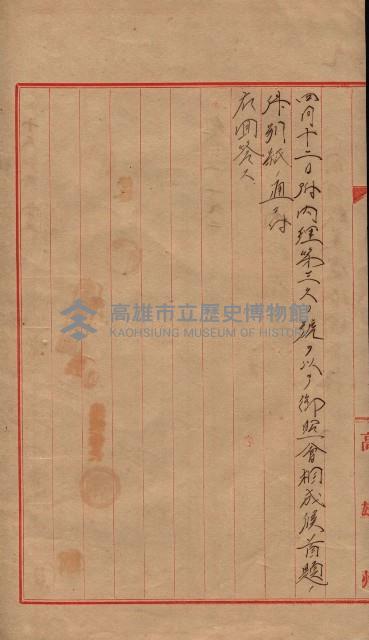 四月十二日附内經第三六ノ號ヲ以テ御照會相成候首題ノ
件別紙ノ通
右回答ス
高雄州
高雄市立歷史博物館
KAOHSIUNG MUSEUM OF HISTORY